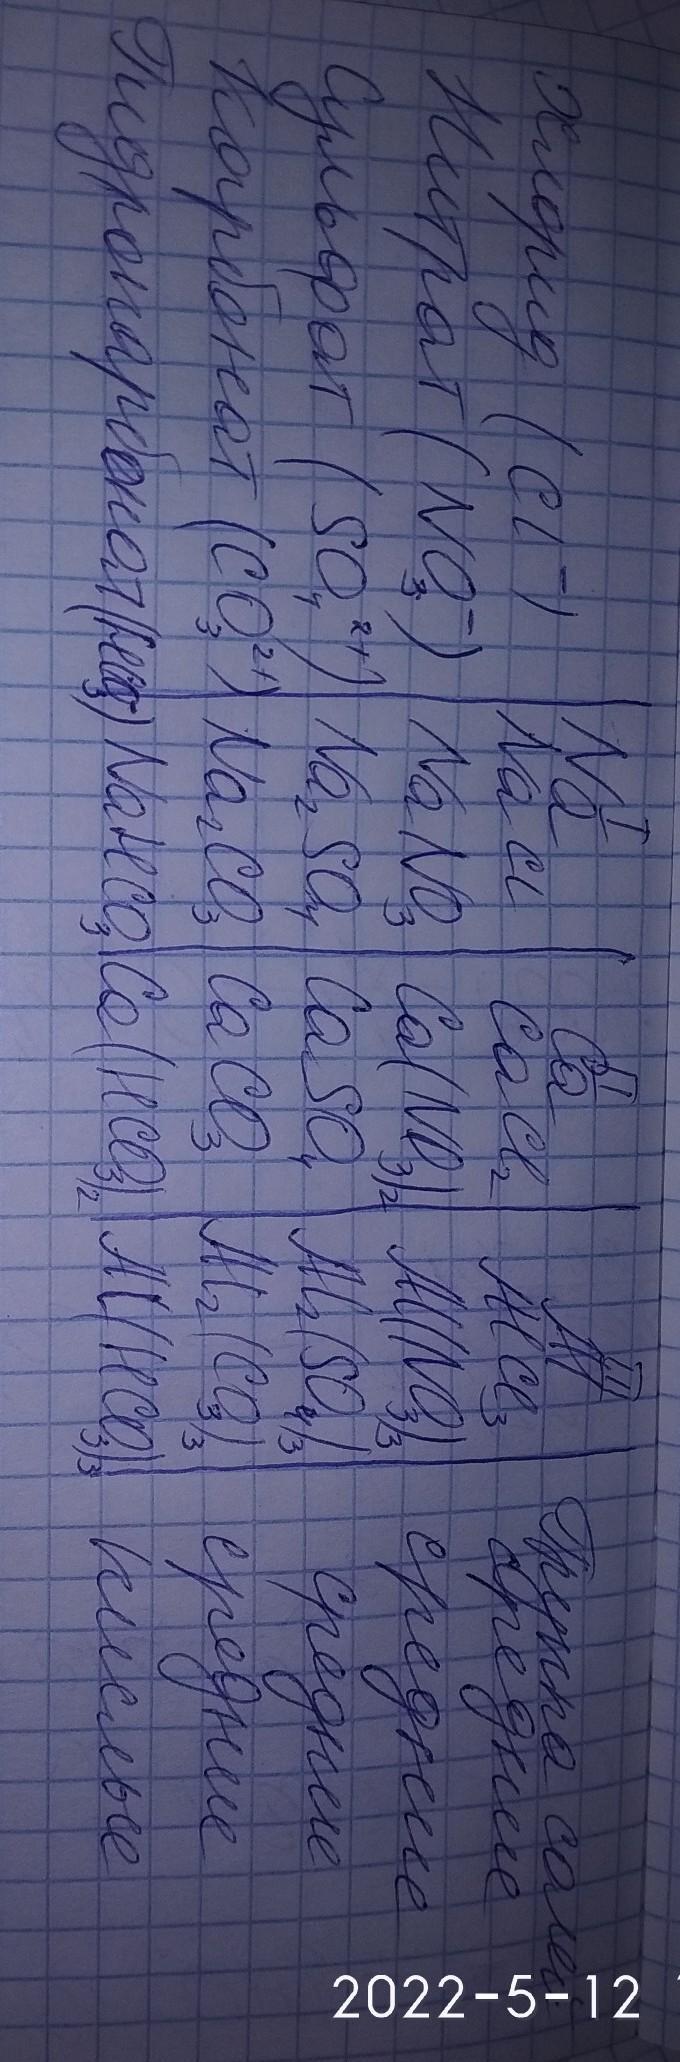 Na I Ca II Al III Группа солей
Хлорид (Cl⁻) NaCl CaCl₂ AlCl₃ средние
Нитрат (NO₃⁻) NaNO₃ Ca(NO₃)₂ Al(NO₃)₃ средние
Сульфат (SO₄²⁺) Na₂SO₄ CaSO₄ Al₂(SO₄)₃ средние
Карбонат (CO₃²⁺) Na₂CO₃ CaCO₃ Al₂(CO₃)₃ средние
Гидрокарбонат (HCO₃⁻) NaHCO₃ Ca(HCO₃)₂ Al(HCO₃)₃ кислые
2022-5-12